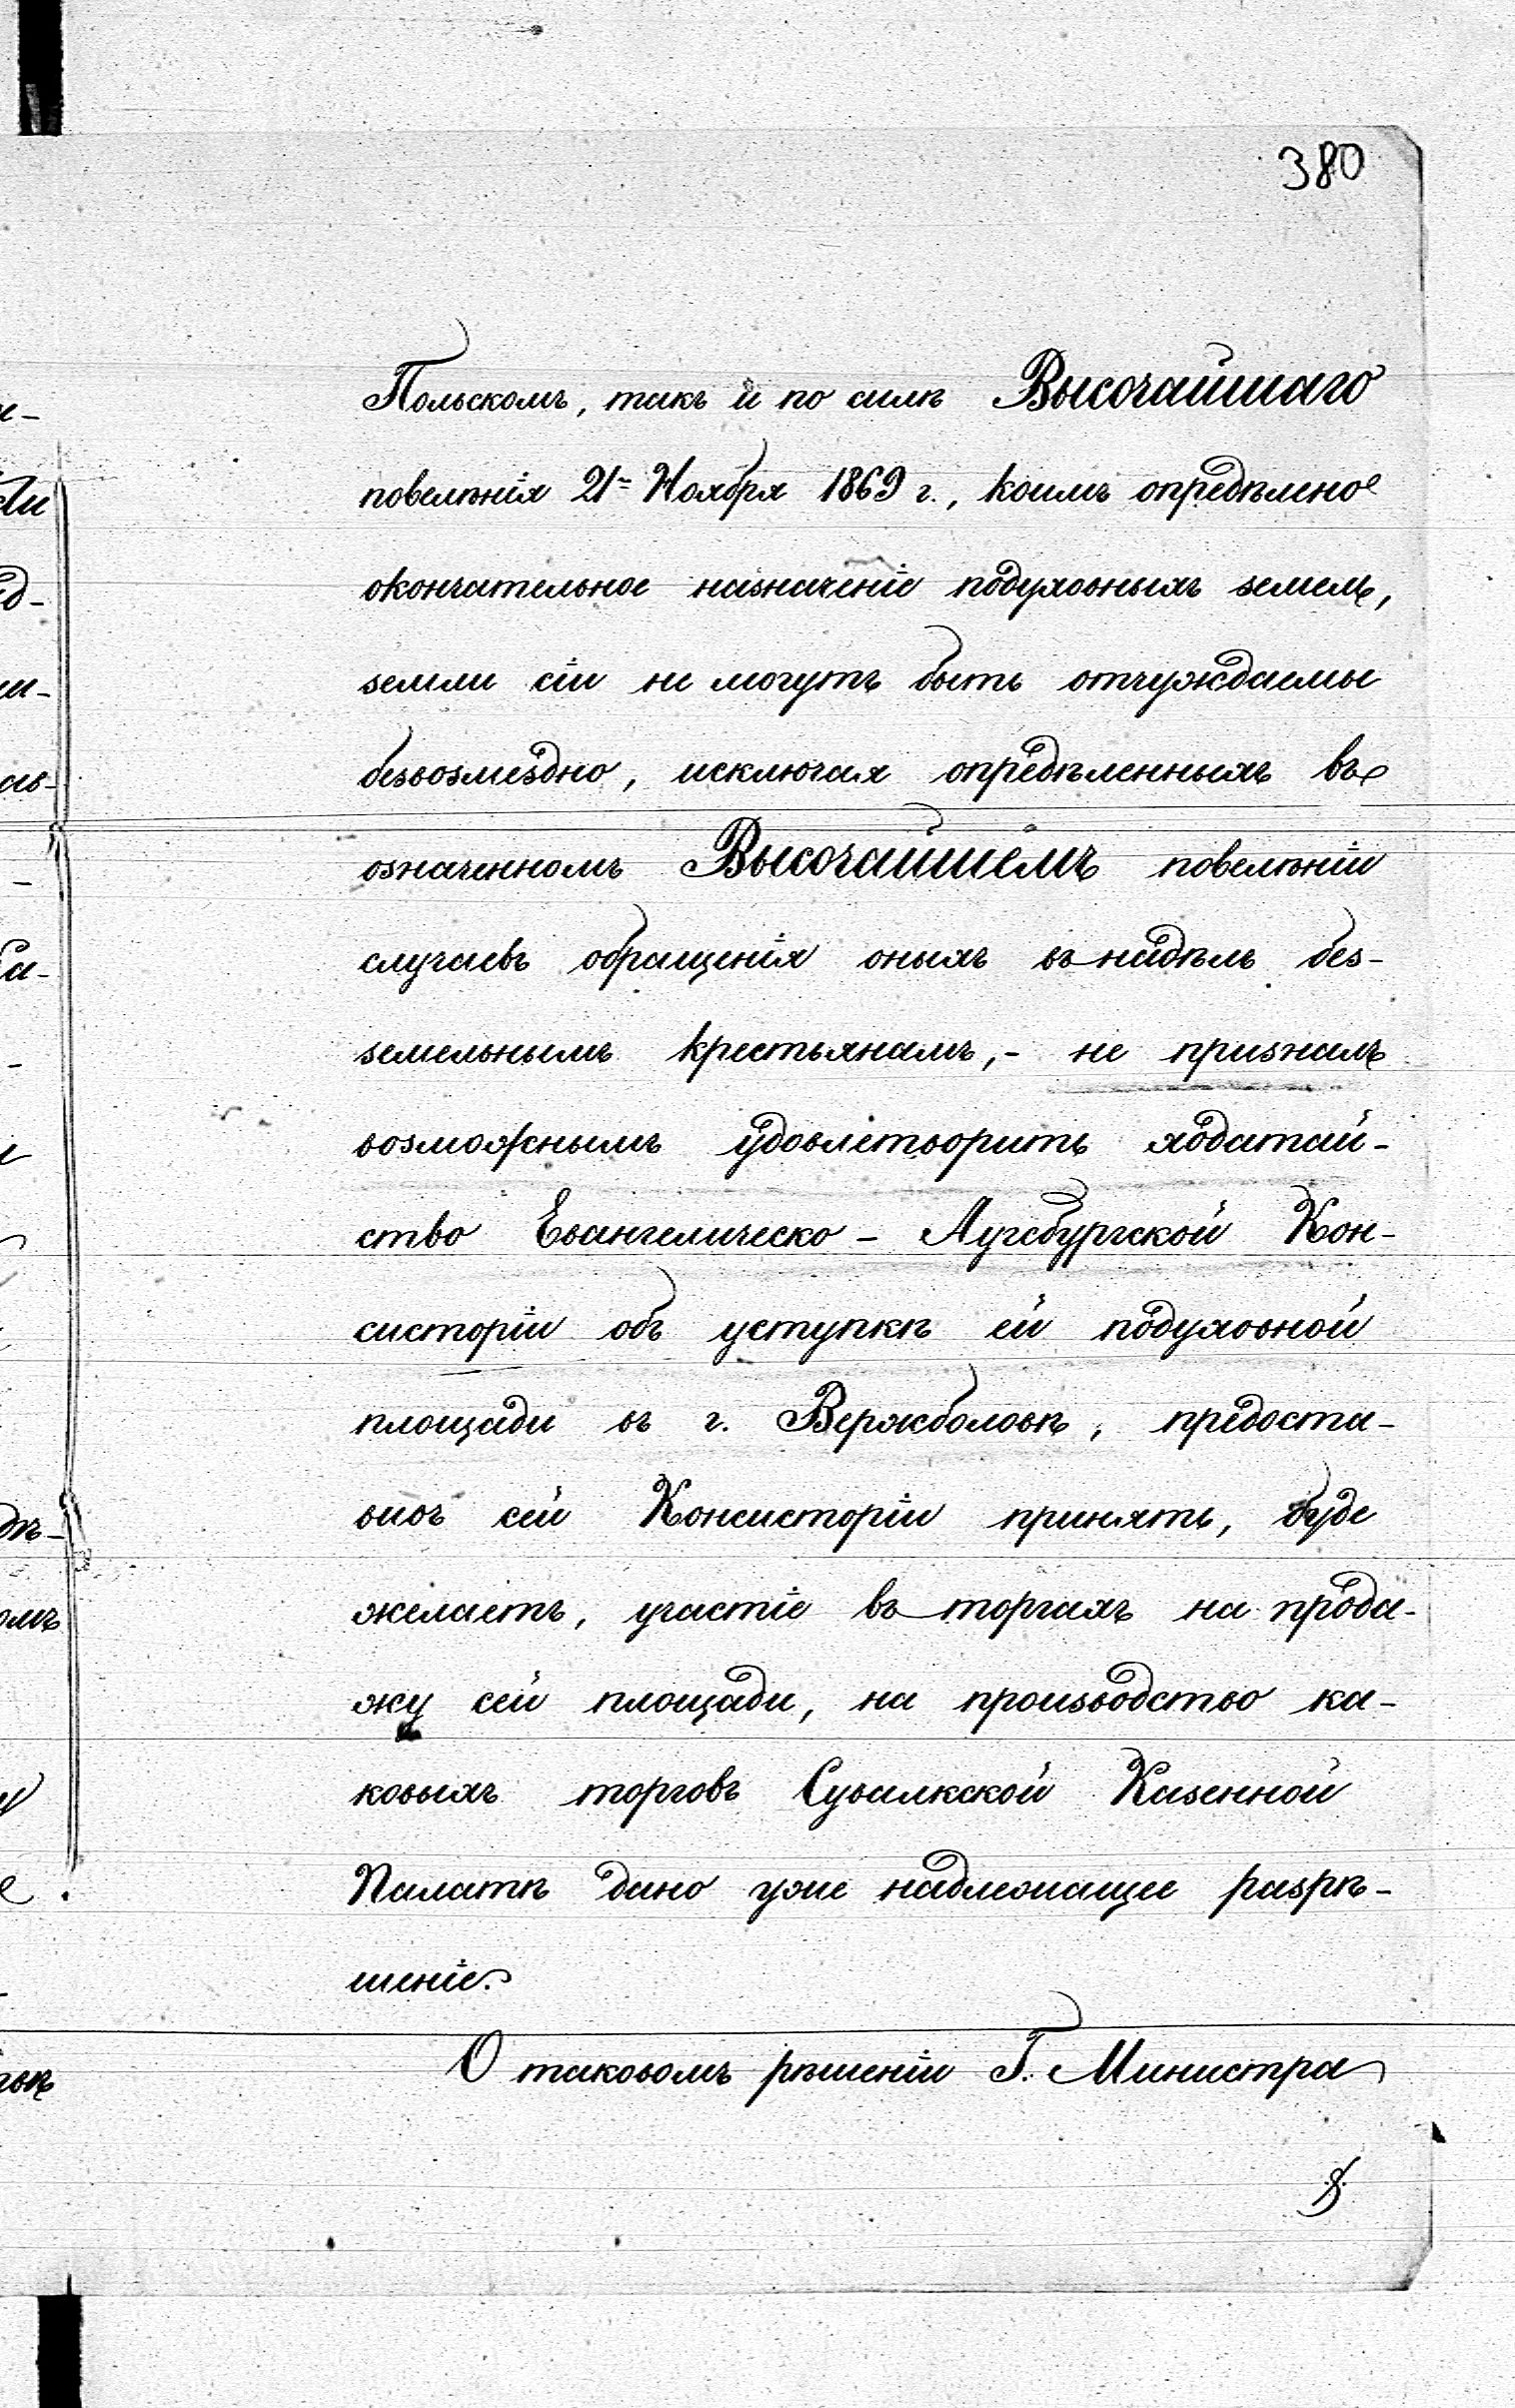 380
Польскомъ, такъ и по силѣ Высочайшаго
повелѣнія 21го Ноября 1869 г., коимъ опредѣлено
окончательное назначеніе подуховныхъ земель,
земли сіи не могутъ быть отчуждаемы
безвозмездно, исключая опредѣленныхъ въ
означенномъ Высочайшемъ повелѣніи
случаевъ обращенія оныхъ въ надѣлъ без-
земельнымъ крестьянамъ,- не призналъ
возможнымъ удовлетворить ходатай-
ство Евангелическо - Аугсбургской Кон-
систоріи объ уступкѣ ей подуховной
площади въ г. Вержболовѣ, предоста-
вивъ сей Консисторіи принять, буде
желаетъ, участіе въ торгахъ на прода-
жу сей площади, на производство ка-
ковыхъ торговъ Сувалкской Казенной
Палатѣ дано уже надлежащее разрѣ-
шеніе.
О таковомъ рѣшеніи Г. Министра